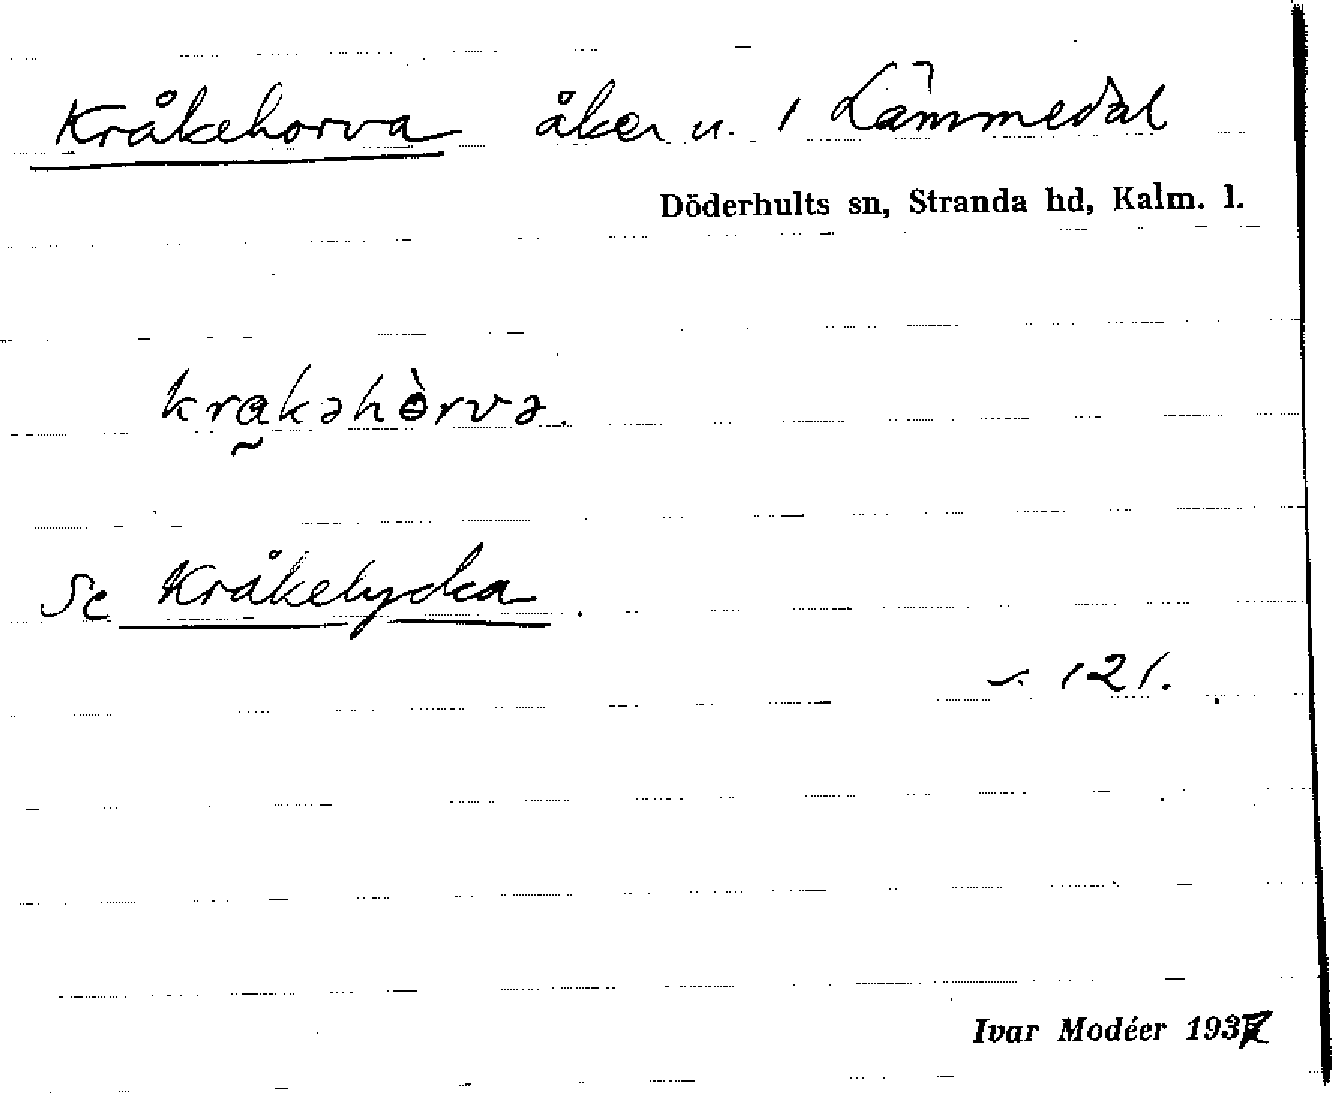 Kråkehorva åker u. 1 Lämmedal
Döderhults sn, Stranda hd, Kalm. l.
krakəhòrva.
Se Kråkelycka.
121.
Ivar Modéer 1937